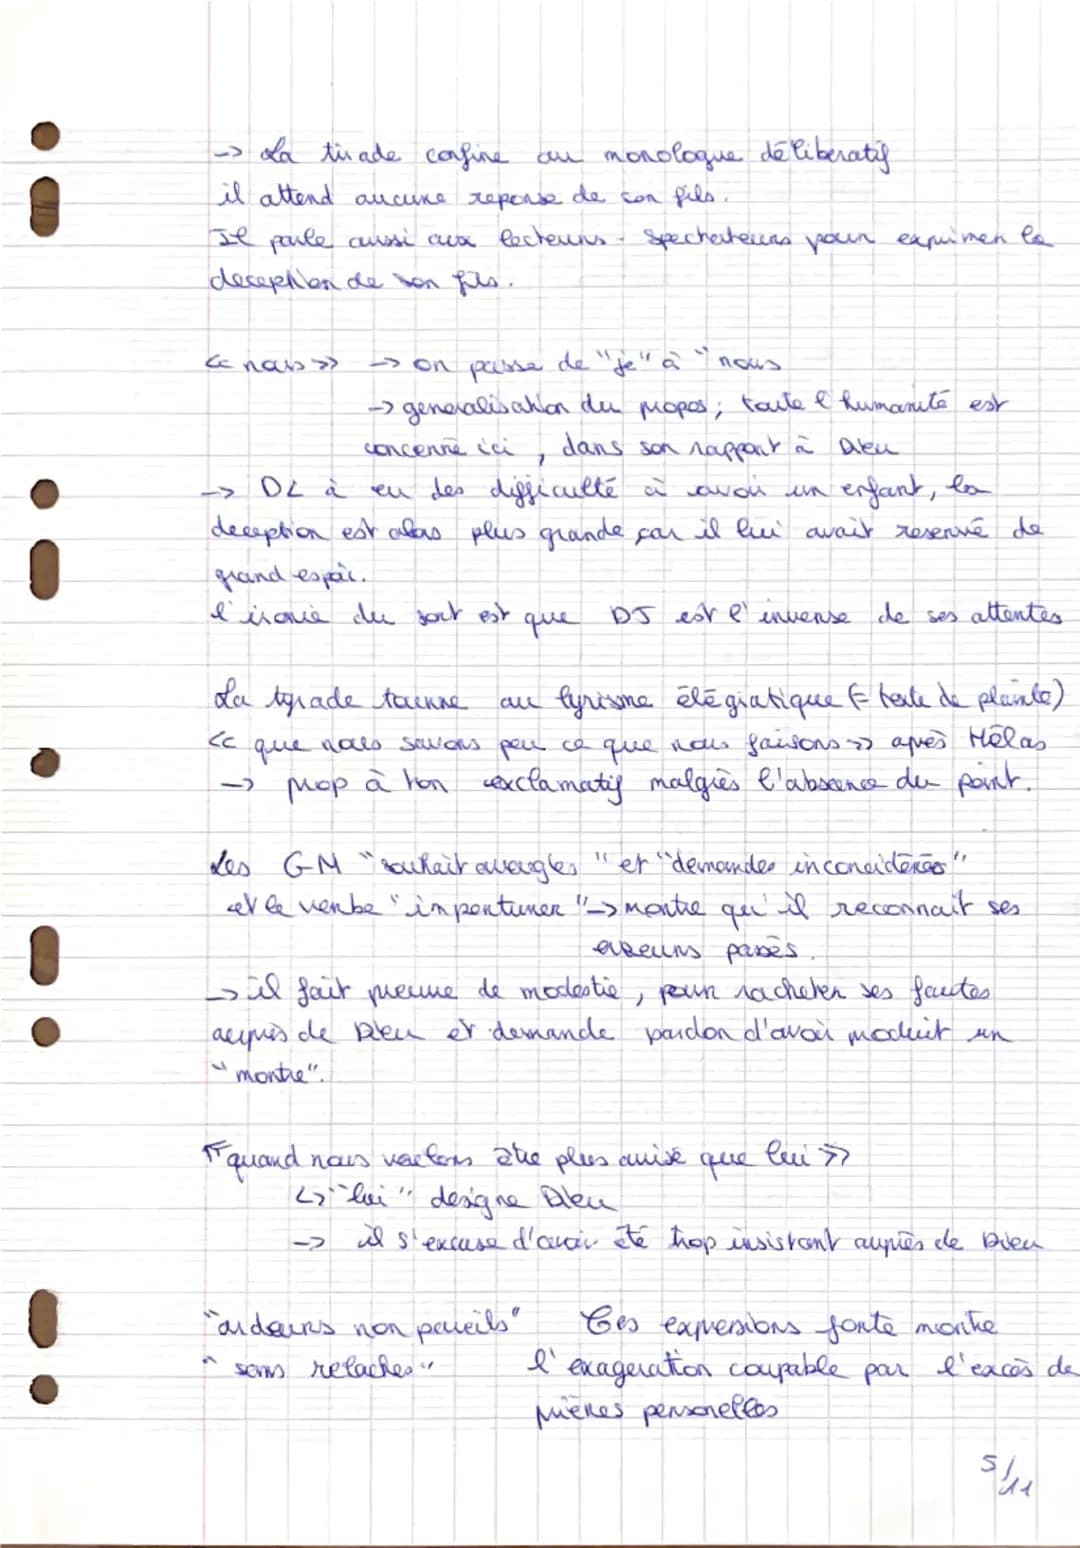 -> La tirade confine au monologue délibératif
il attend aucune reponse de son fils.
Il parle aussi aux lecteurs - spectateurs pour exprimer la
deception de son fils.
<< nous >> -> on passe de "je" à "nous
-> generalisation du propos ; toute l'humanité est
concerné ici , dans son rapport à Dieu
-> DL à eu des difficulté à avoir un enfant, la
deception est alors plus grande car il lui avait reservé de
grand espoir.
l'ironie du sort est que DJ est l'inverse de ses attentes
La tyrade tourne au lyrisme élégiatique (= texte de plainte)
<< que nous savons peu ce que nous faisons >> après Hélas
-> prop à ton exclamatif malgrès l'absence du point.
Les GM "souhait aveugles" et "demandes inconcidérés"
et le verbe "importuner" -> montre qu'il reconnait ses
erreurs passés.
-> il fait preuve de modestie, pour racheter ses fautes
auprès de Dieu et demande pardon d'avoir produit un
"montre".
"quand nous voulons être plus avisé que lui >>
<> "lui" designe Dieu
-> il s'excuse d'avoir été trop insistant auprès de Dieu
"ardeurs non pareils" Ces expressions forte montre
"sans relaches" l'exageration coupable par l'excès de
prières personelles
5/11